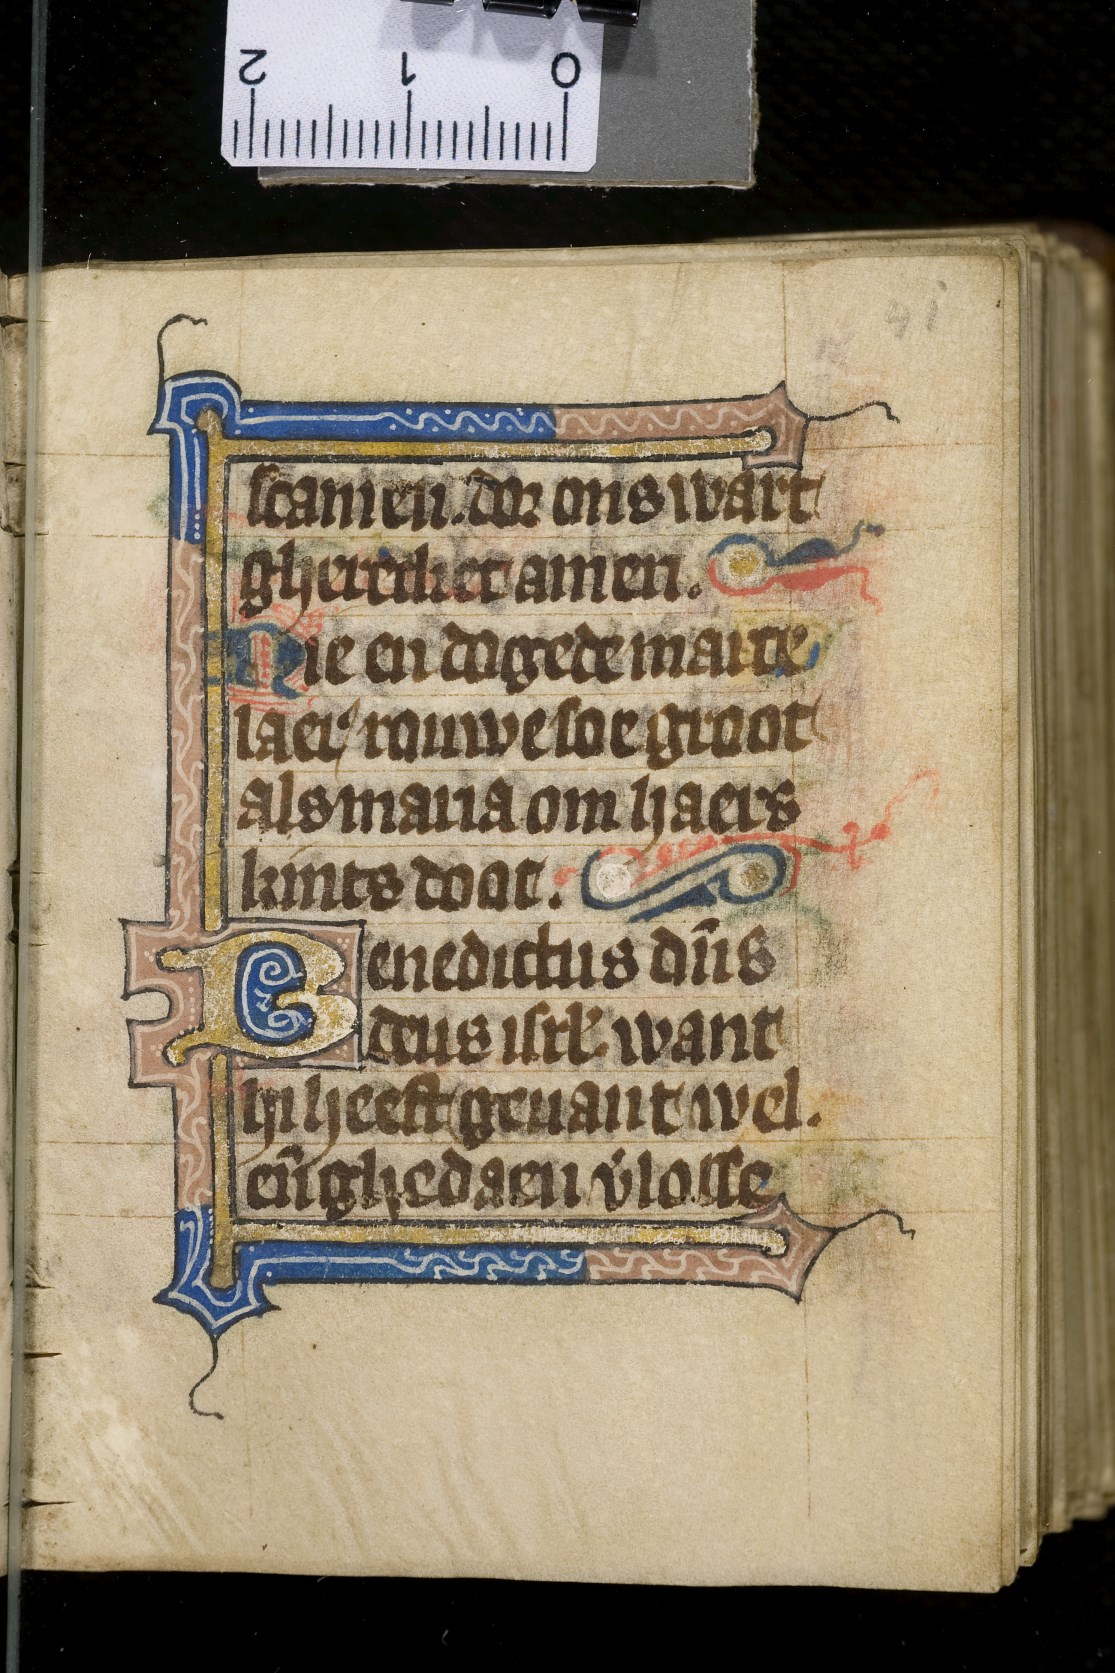 2 1 0
41
scamen. dor ons wart
gherechet amen.
Nie en dogede marte
laer rouwe soe groot
als maria om haers
kints doot.
Benedictus dn̄s
deus isrl̄. want
hi heeft geuant wel.
en̄ ghedaen v̓losse